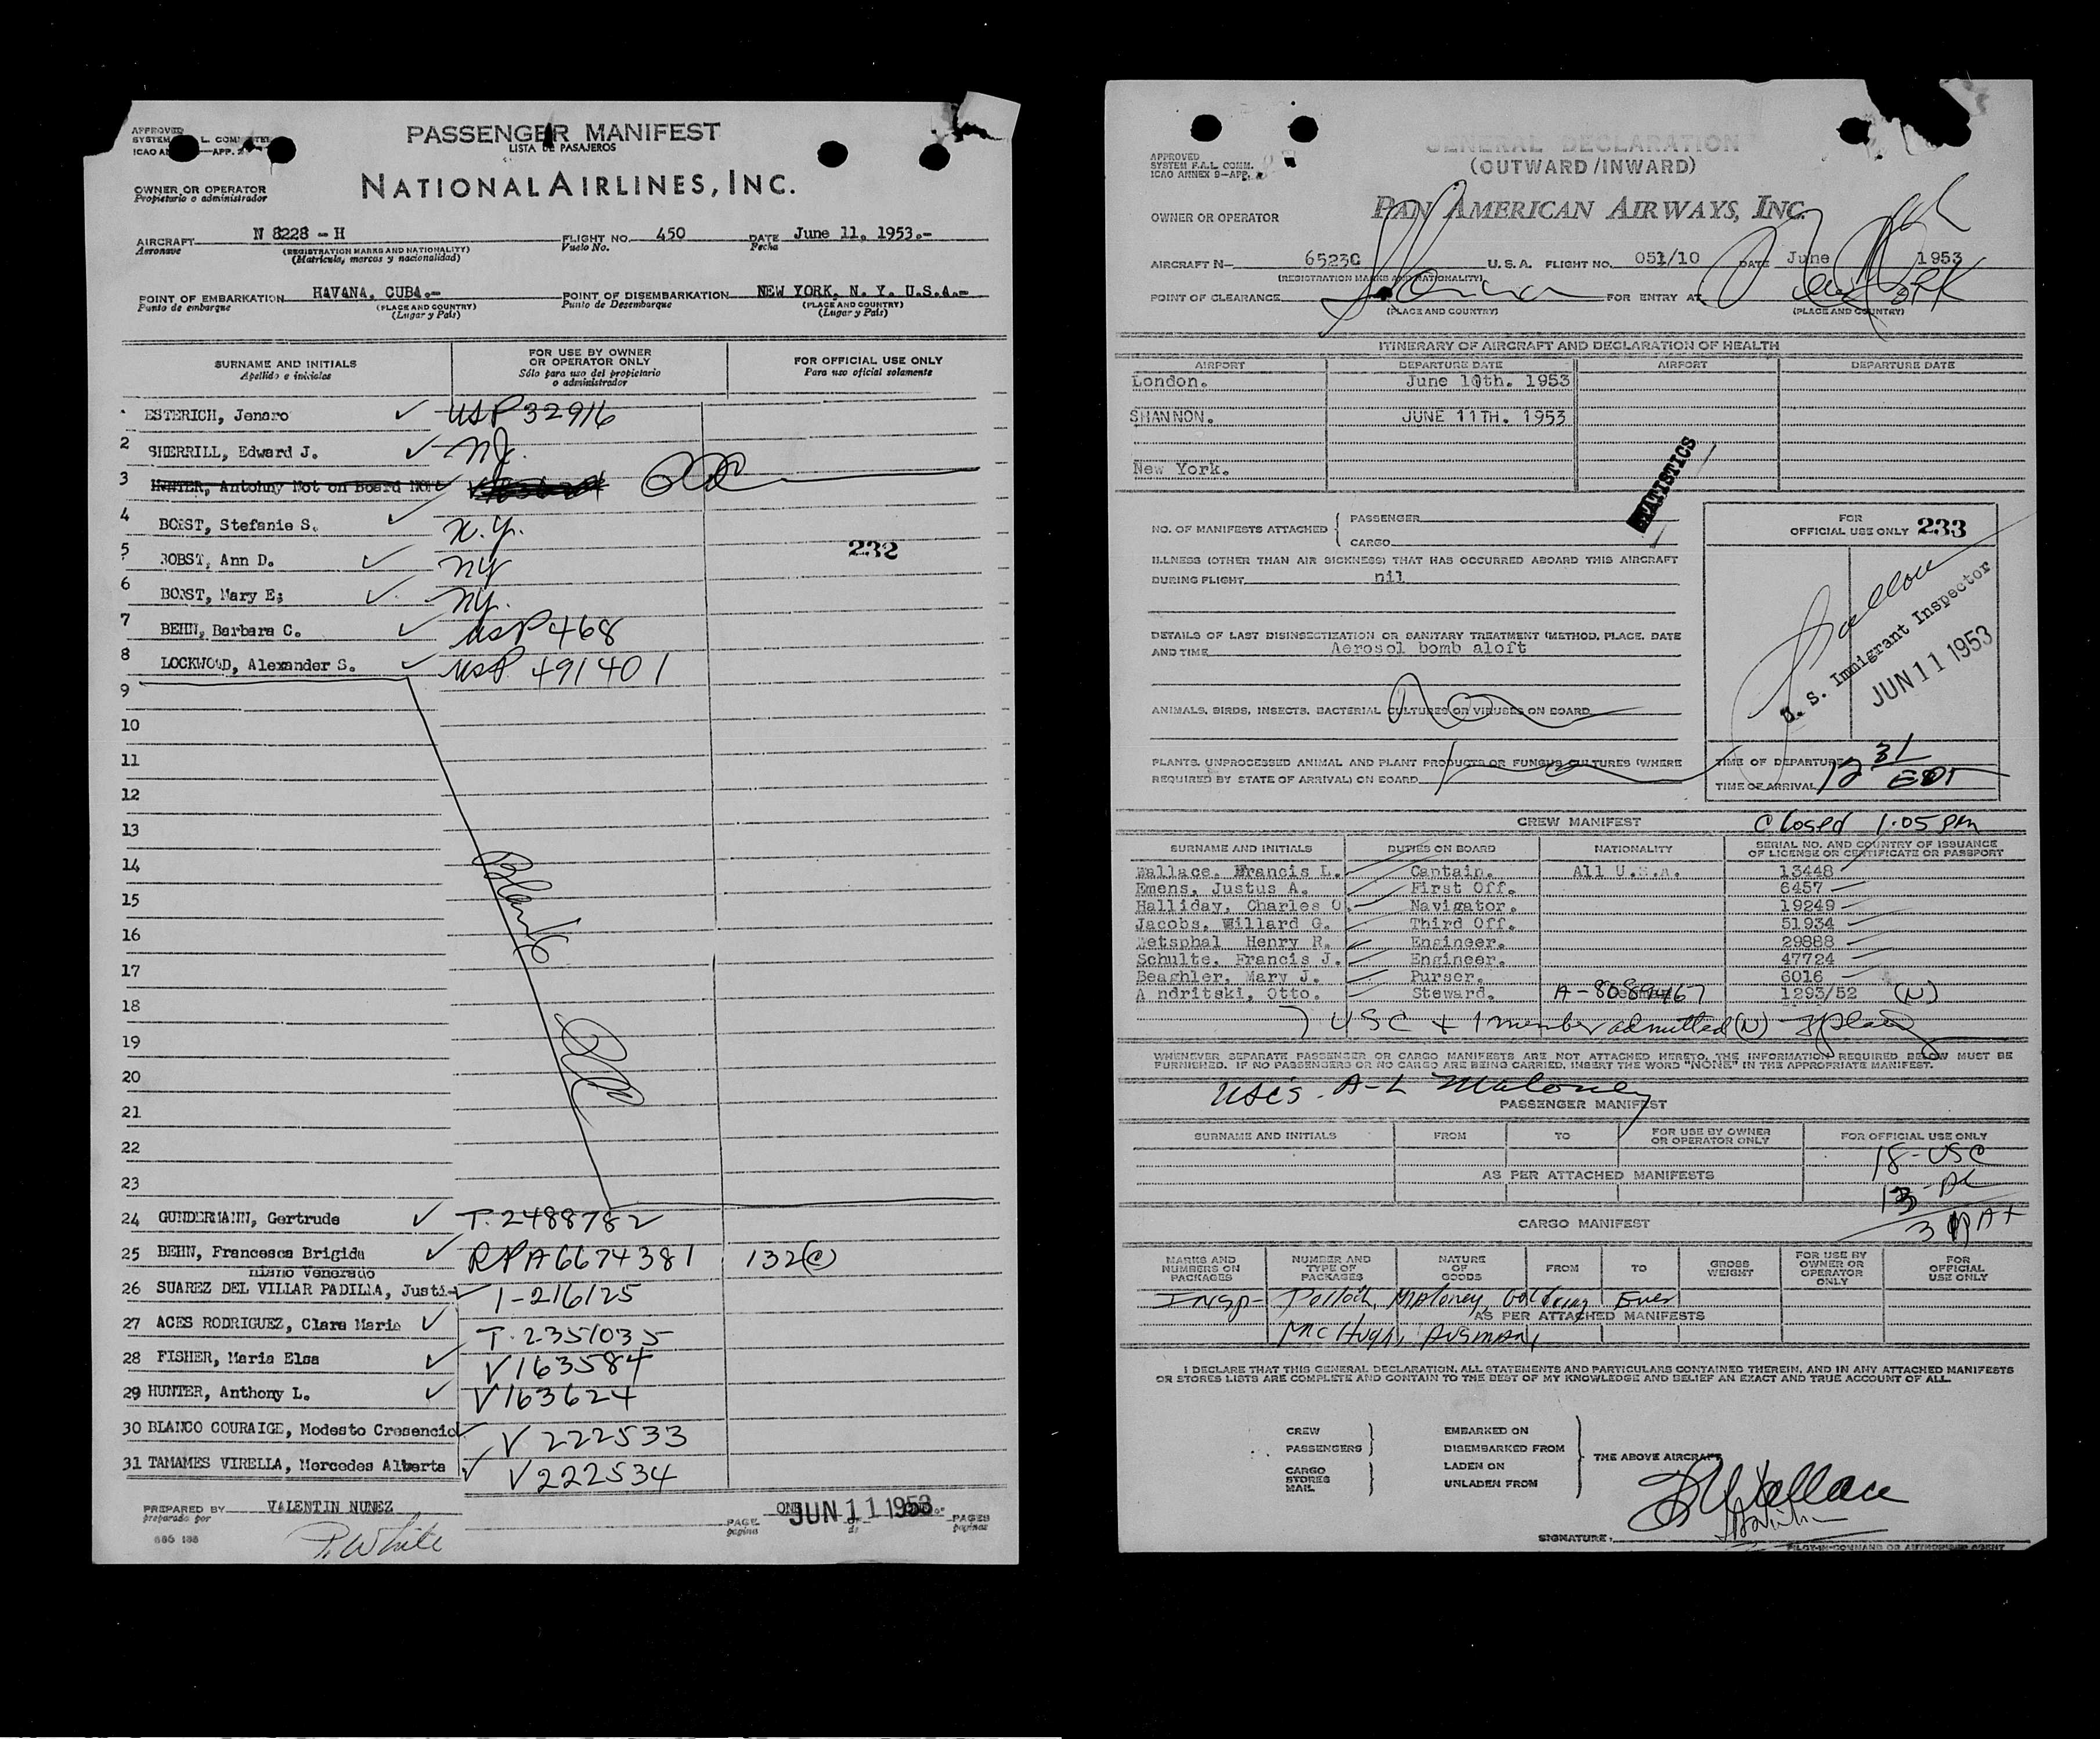 APPROVED
SYSTEM L. COMMITTEE
ICAO AN —APP. 2
PASSENGER MANIFEST
LISTA DE PASAJEROS
OWNER OR OPERATOR
Propietario o administrador
NATIONAL AIRLINES, INC.
AIRCRAFT N 8228 - H FLIGHT NO. 450 DATE June 11, 1953.-
Aeronave (REGISTRATION MARKS AND NATIONALITY) Vuelo No. Fecha
(Matricula, marcas y nacionalidad)
POINT OF EMBARKATION HAVANA, CUBA.- POINT OF DISEMBARKATION NEW YORK, N. Y. U.S.A.-
Punto de embarque (PLACE AND COUNTRY) Punto de Desembarque (PLACE AND COUNTRY)
(Lugar y País) (Lugar y País)
SURNAME AND INITIALS FOR USE BY OWNER OR OPERATOR ONLY FOR OFFICIAL USE ONLY
Apellido e iniciales Sólo para uso del propietario o administrador Para uso oficial solamente
ESTERICH, Jenaro USP 32916
2 SHERRILL, Edward J. NJ.
3 HUNTER, Antohny Not on Board NO
4 BORST, Stefanie S. N.Y.
5 BOBST, Ann D. NY 232
6 BORST, Mary E; NY.
7 BEHN, Barbara C. USP 468
8 LOCKWOOD, Alexander S. USP 491401
9
10
11
12
13
14 Blank
15
16
17
18
19
20
21
22
23
24 GUNDERMANN, Gertrude T. 2488782
25 BEHN, Francesca Brigida RPA6674381 132(C)
niano Venerado
26 SUAREZ DEL VILLAR PADILLA, Justi- T-216125
27 ACES RODRIGUEZ, Clara Maria T. 2351035
28 FISHER, Maria Elsa V163584
29 HUNTER, Anthony L. V163624
30 BLANCO COURAIGE, Modesto Cresencio V 222533
31 TAMAMES VIRELLA, Mercedes Alberta V222534
PREPARED BY VALENTIN NUNEZ PAGE ONE JUN 11 1953 PAGES
preparado por página de páginas
P. White
GENERAL DECLARATION
(OUTWARD/INWARD)
APPROVED
SYSTEM F.A.L. COMM.
ICAO ANNEX 9—APP.
OWNER OR OPERATOR PAN AMERICAN AIRWAYS, INC.
AIRCRAFT N— 6523C U.S.A. FLIGHT NO. 051/10 DATE June 1953
(REGISTRATION MARKS AND NATIONALITY)
POINT OF CLEARANCE Shannon FOR ENTRY AT New York
(PLACE AND COUNTRY) (PLACE AND COUNTRY)
ITINERARY OF AIRCRAFT AND DECLARATION OF HEALTH
AIRPORT DEPARTURE DATE AIRPORT DEPARTURE DATE
London. June 10th. 1953
SHANNON. JUNE 11TH. 1953
New York.
STATISTICS
NO. OF MANIFESTS ATTACHED { PASSENGER
CARGO
FOR OFFICIAL USE ONLY 233
ILLNESS (OTHER THAN AIR SICKNESS) THAT HAS OCCURRED ABOARD THIS AIRCRAFT
DURING FLIGHT nil
DETAILS OF LAST DISINSECTIZATION OR SANITARY TREATMENT (METHOD, PLACE, DATE
AND TIME Aerosol bomb aloft
U. S. Immigrant Inspector
JUN 11 1953
ANIMALS, BIRDS, INSECTS, BACTERIAL CULTURES OR VIRUSES ON BOARD
PLANTS, UNPROCESSED ANIMAL AND PLANT PRODUCTS OR FUNGUS CULTURES (WHERE
REQUIRED BY STATE OF ARRIVAL) ON BOARD
TIME OF DEPARTURE
TIME OF ARRIVAL 12 31 EDT
CREW MANIFEST Closed 1:05 pm
SURNAME AND INITIALS DUTIES ON BOARD NATIONALITY SERIAL NO. AND COUNTRY OF ISSUANCE OF LICENSE OR CERTIFICATE OR PASSPORT
Wallace. Francis L. Captain. All U.S.A. 13448
Emens, Justus A. First Off. 6457
Halliday, Charles O. Navigator. 19249
Jacobs, Willard G. Third Off. 51934
Wetsphal Henry R. Engineer. 29888
Schulte, Francis J. Engineer. 47724
Beaghler, Mary J. Purser. 6016
A ndritski, Otto. Steward. A-8089467 1293/52 (N)
7 USC + 1 member admitted (N)
WHENEVER SEPARATE PASSENGER OR CARGO MANIFESTS ARE NOT ATTACHED HERETO, THE INFORMATION REQUIRED BELOW MUST BE
FURNISHED. IF NO PASSENGERS OR NO CARGO ARE BEING CARRIED, INSERT THE WORD "NONE" IN THE APPROPRIATE MANIFEST.
USC's. A-L Maloney
PASSENGER MANIFEST
SURNAME AND INITIALS FROM TO FOR USE BY OWNER OR OPERATOR ONLY FOR OFFICIAL USE ONLY
18-USC
AS PER ATTACHED MANIFESTS
13
CARGO MANIFEST
MARKS AND NUMBERS ON PACKAGES NUMBER AND TYPE OF PACKAGES NATURE OF GOODS FROM TO GROSS WEIGHT FOR USE BY OWNER OR OPERATOR ONLY FOR OFFICIAL USE ONLY
INSP- Maloney
AS PER ATTACHED MANIFESTS
McHugh,
I DECLARE THAT THIS GENERAL DECLARATION, ALL STATEMENTS AND PARTICULARS CONTAINED THEREIN, AND IN ANY ATTACHED MANIFESTS
OR STORES LISTS ARE COMPLETE AND CONTAIN TO THE BEST OF MY KNOWLEDGE AND BELIEF AN EXACT AND TRUE ACCOUNT OF ALL
CREW EMBARKED ON
PASSENGERS DISEMBARKED FROM THE ABOVE AIRCRAFT
CARGO LADEN ON
STORES
MAIL UNLADEN FROM
SIGNATURE. F L Wallace
PILOT-IN-COMMAND OR AUTHORISED AGENT